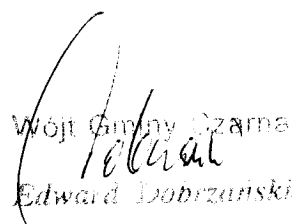 Wójt Gminy Czarna
Edward Dobrzański